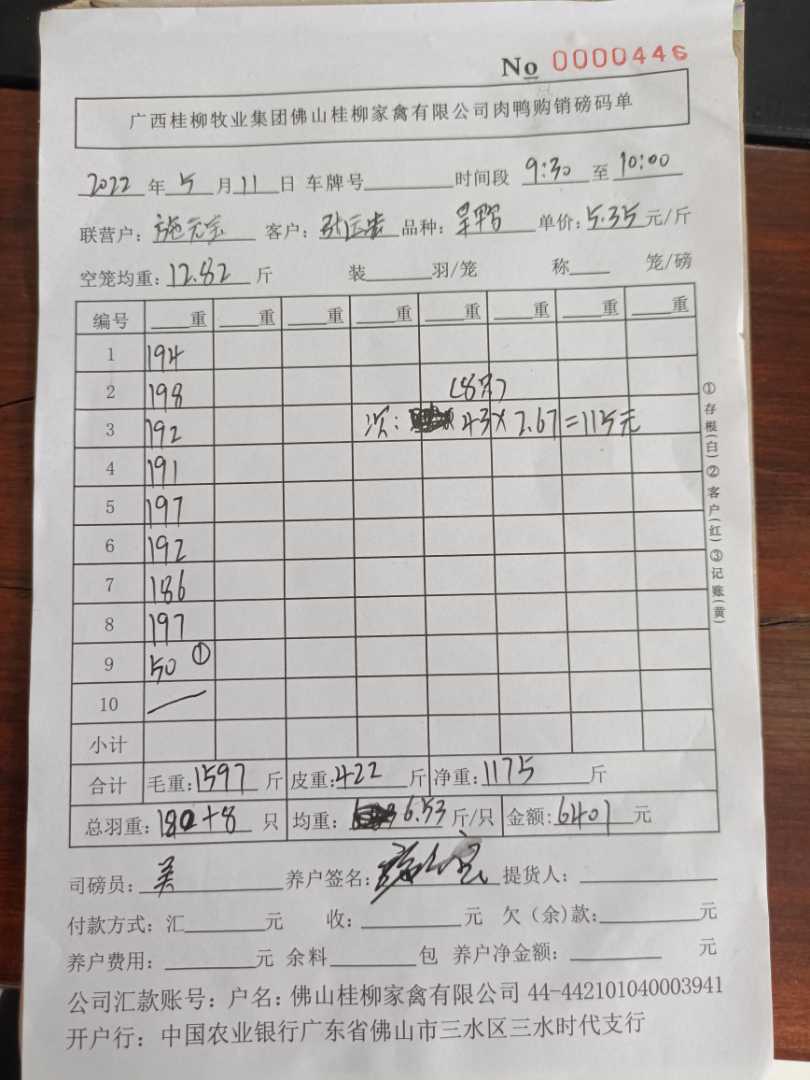 No 0000446
广西桂柳牧业集团佛山桂柳家禽有限公司肉鸭购销磅码单
2022年5月11日 车牌号____ 时间段 9:30 至 10:00
联营户: 客户: 品种: 单价:5.35元/斤
空笼均重:12.82斤 装____羽/笼 称____笼/磅
编号 ____重 ____重 ____重 ____重 ____重 ____重 ____重 ____重
1 194
2 198 (8只)
3 192 次: 43×2.67=115元
4 191
5 197
6 192
7 186
8 197
9 50 ①
10 —
小计
合计 毛重:1597斤 皮重:422斤 净重:1175斤
总羽重:180+8只 均重:6.53斤/只 金额:6401元
司磅员: 养户签名: 提货人:____
付款方式:汇____元 收:____元 欠(余)款:____元
养户费用:____元 余料____包 养户净金额:____元
公司汇款账号:户名:佛山桂柳家禽有限公司 44-442101040003941
开户行:中国农业银行广东省佛山市三水区三水时代支行
①存根(白)②客户(红)③记账(黄)